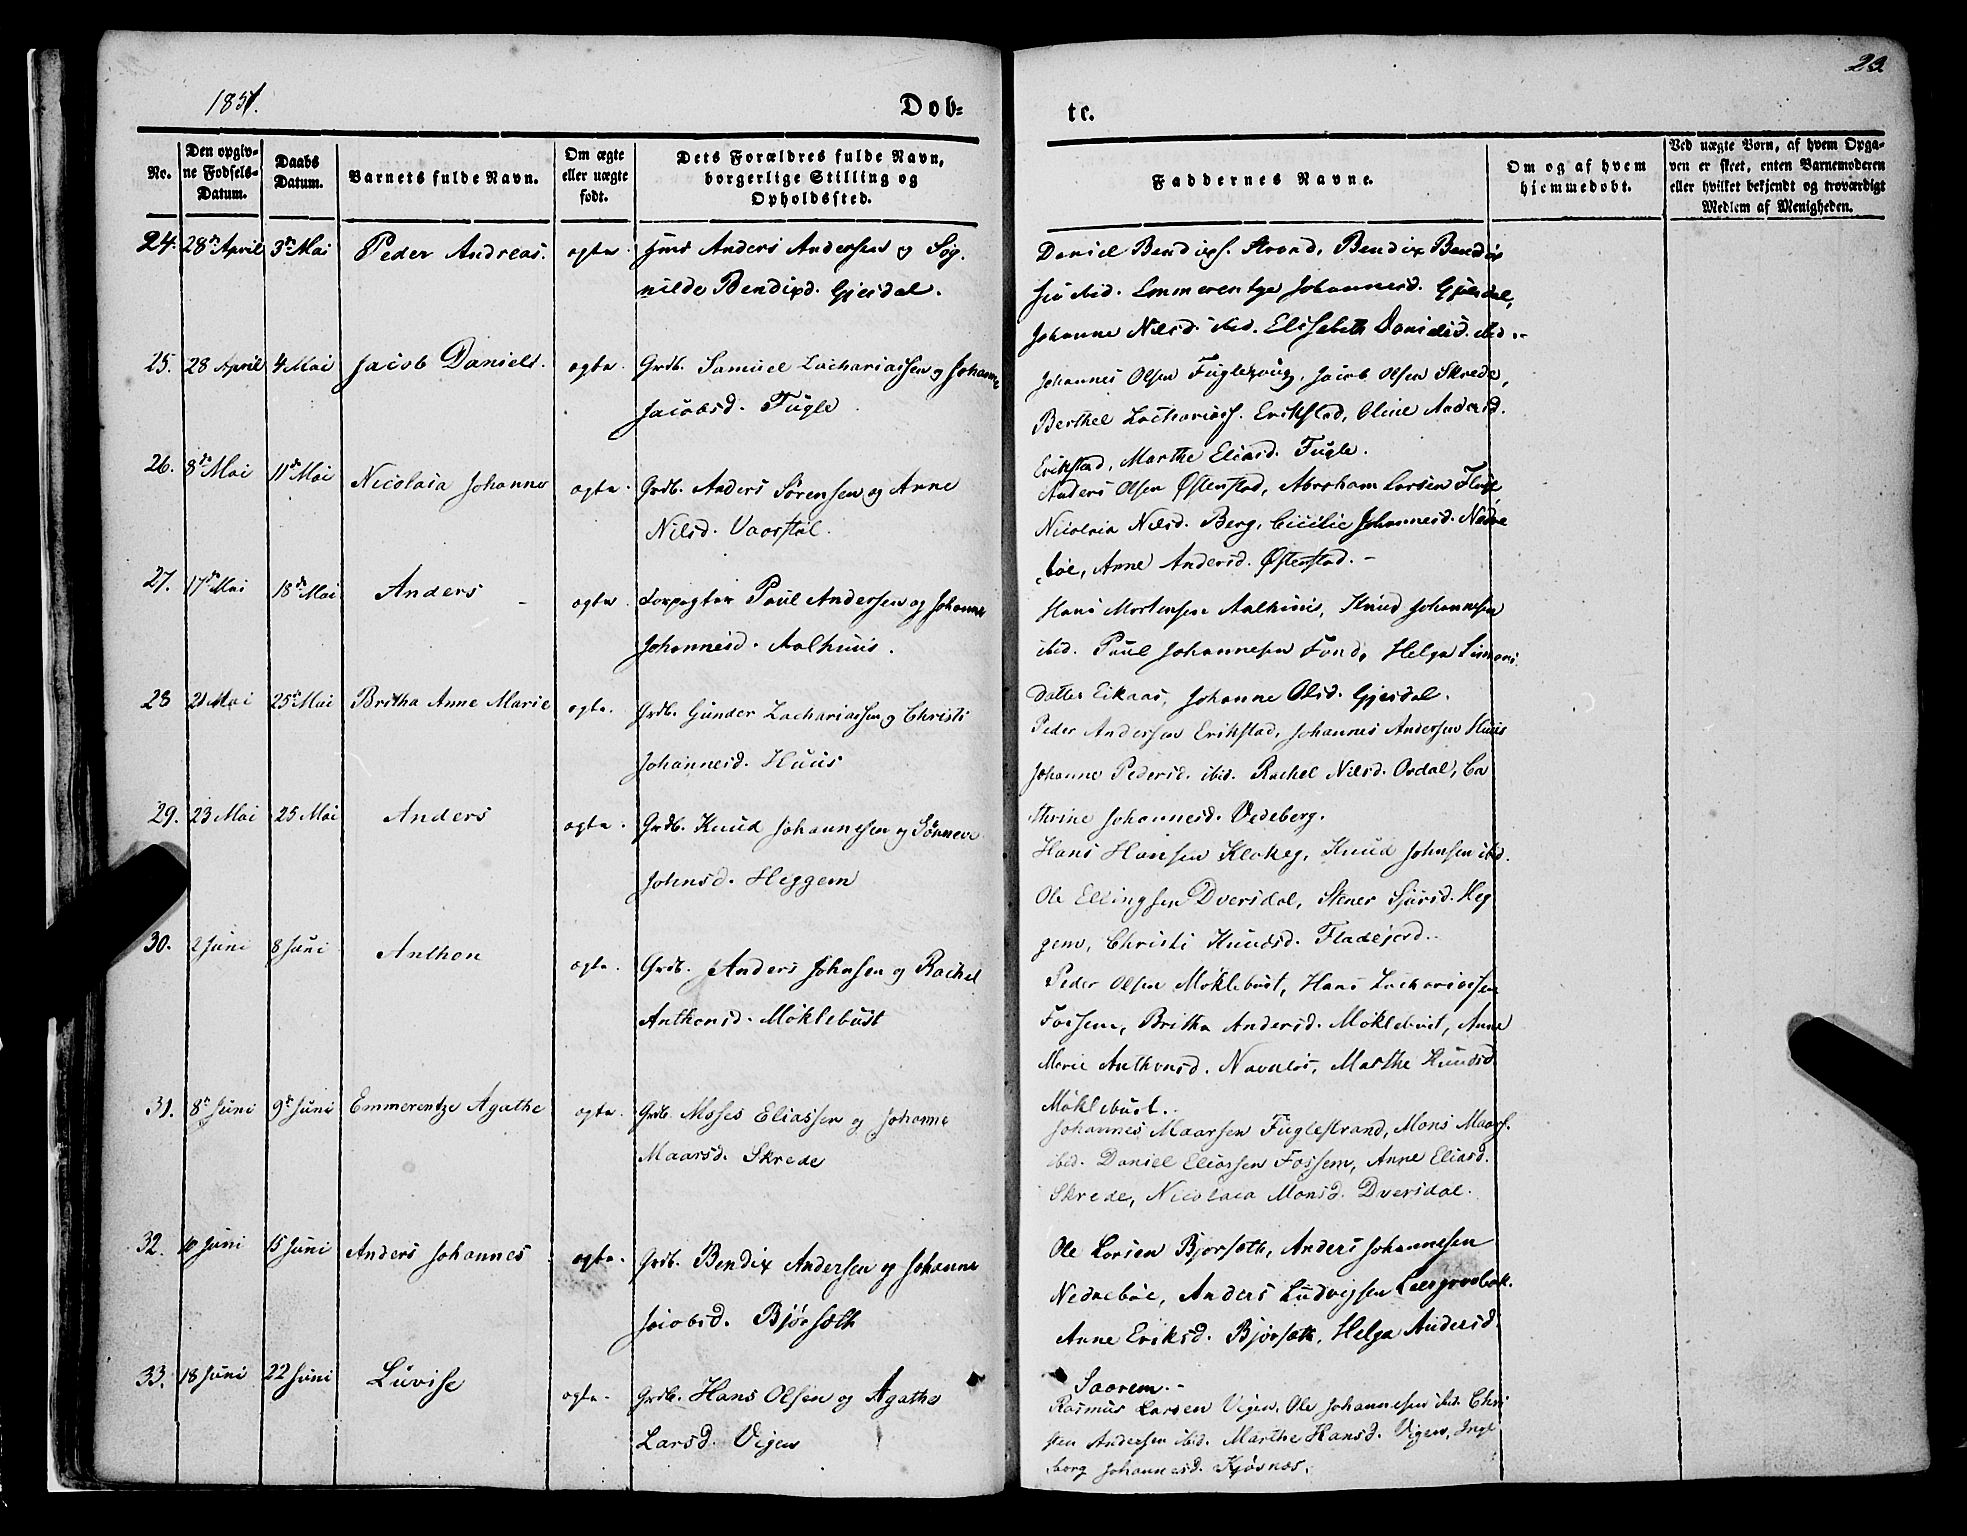 1851.
Dob=
tc.
23.
No.
Den opgiv-
ne Fødsels-
Datum.
Daabs
Datum.
Barnets fulde Navn.
Om ægte
eller uægte
født.
Dets Forældres fulde Navn,
borgerlige Stilling og
Opholdssted.
Faddernes Navne.
Om og af hvem
hjemmedøbt.
Ved uægte Børn, af hvem Opga-
ven er skeet, enten Barnemoderen
eller hvilket bekjendt og troværdigt
Medlem af Menigheden.
24. 28de April 3de Mai Peder Andreas. ægte. Anders Andersen og Sig-
nilde Bendixd. Gjesdal.
Daniel Bendixs. Strand, Bendix Bendix
sen ibid. Emmerentze Johannesd. Gjesdal,
Johanne Nilsd. ibid. Elisabeth Danielsd. ibid.
25. 28 April 4 Mai Jacob Daniel. ægte. Grdb. Samuel Zachariassen og Johanne
Jacobsd. Fugle.
Johannes Olsen Jacob Olsen Skrede,
Berthel Zacharias. Erikstad, Oline Andersd.
Erikstad, Marthe Eliasd. Fugle.
26. 8de Mai 11de Mai Nicolaia Johanne ægte. Grdb. Anders Sørensen og Anne
Nilsd. Vaarstøl.
Anders Olsen Østenstad, Abraham Larsen
Nicolaia Nilsd. Berg, Cicilie Johannesd. Nedre
bøe, Anne Andersd. Østenstad.
27. 17de Mai 18de Mai Anders ægte. Forpagter Paul Andersen og Johanne
Johannesd. Aalhuus.
Hans Mortensen Aalhuus, Knud Johannesen
ibid. Paul Johannesen Fond, Helga Simons
datter Eikaas, Johanne Olsd. Gjesdal.
28 21 Mai 25de Mai Britha Anne Marie ægte. Grdb. Gunder Zachariassen og Christi
Johannesd. Huus
Peder Andersen Erikstad, Johannes Andersen Huus
Johanne Pedersd. ibid. Rachel Nilsd. Ordal, Ca
thrine Johannesd. Vedeberg.
29. 23 Mai 25 Mai Anders ægte. Grdb. Knud Johannesen og Sønneve
Johnsd. Heggem
Hans Hansen Klokeg, Knud Johnsen ibid.
Ole Ellingsen Dversdal, Stener Sjursd. Heg
gem, Christi Knudsd. Fladejord.
30. 2 Juni 8 Juni Anthon ægte. Grdb. Anders Johnsen og Rachel
Anthonsd. Møklebust
Peder Olsen Møklebust, Hans Zachariassen
Fossem, Britha Andersd. Møklebust, Anne
Marie Anthonsd. Navaløs, Marthe Knudsd
Møklebust.
31. 8de Juni 9de Juni Emmerentze Agathe ægte. Grdb. Moses Eliassen og Johanne
Maarsd. Skrede
Johannes Maarsen Fuglestrand, Mons Maars.
ibid. Daniel Eliassen Fossem, Anne Eliasd.
Skrede, Nicolaia Monsd. Dversdal.
32. 10 Juni 15 Juni Anders Johannes ægte. Grdb. Bendix Andersen og Johanne
Jacobsd. Bjørsæth
Ole Larsen Bjørsæth, Anders Johannesen
Nedrebøe, Anders Ludvigsen
Anne Eriksd. Bjørsæth, Helga Andersd
Saarem.
33. 18 Juni 22 Juni Luvise ægte. Grdb. Hans Olsen og Agathe
Larsd. Vigen
Rasmus Larsen Vigen, Ole Johannesen ibid. Chri
sten Andersen ibid. Marthe Hansd. Vigen, Inge
borg Johannesd. Kjøsnæs.